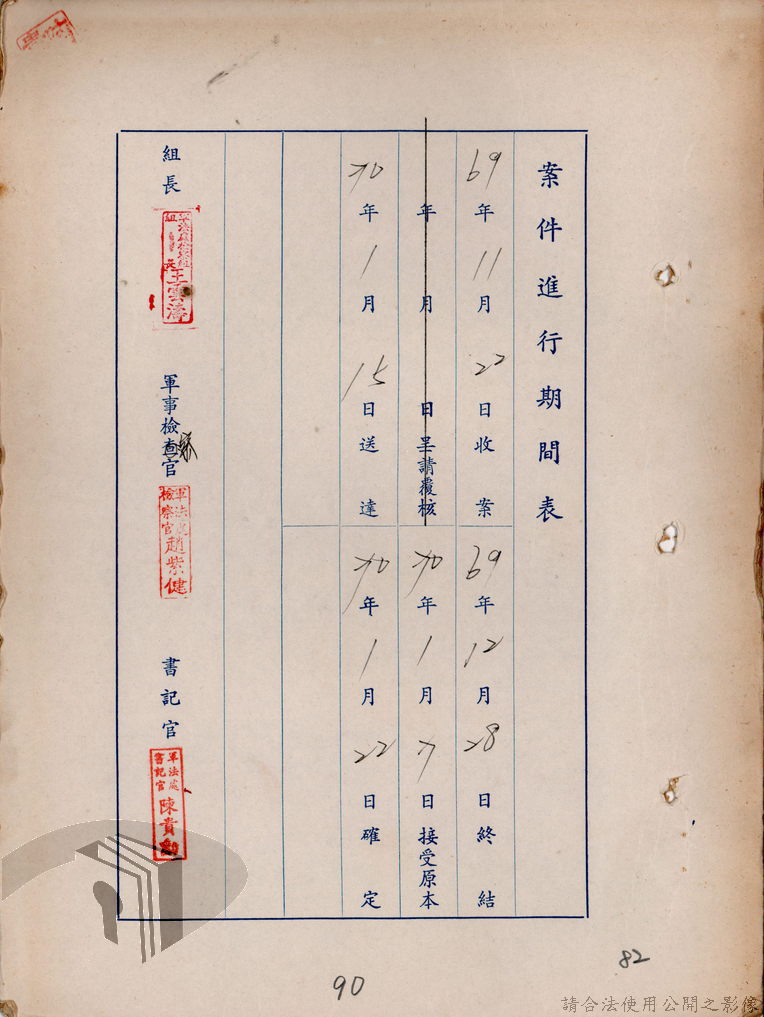 案件進行期間表
69年11月22日收案
69年12月28日終結
年月日呈請覆核
70年1月7日接受原本
70年1月15日送達
70年1月22日確定
組長
王雲濤
軍事檢查官
察
軍法處
檢察官
趙紫健
書記官
軍法處
書記官
陳貴
90
82
請合法使用公開之影像